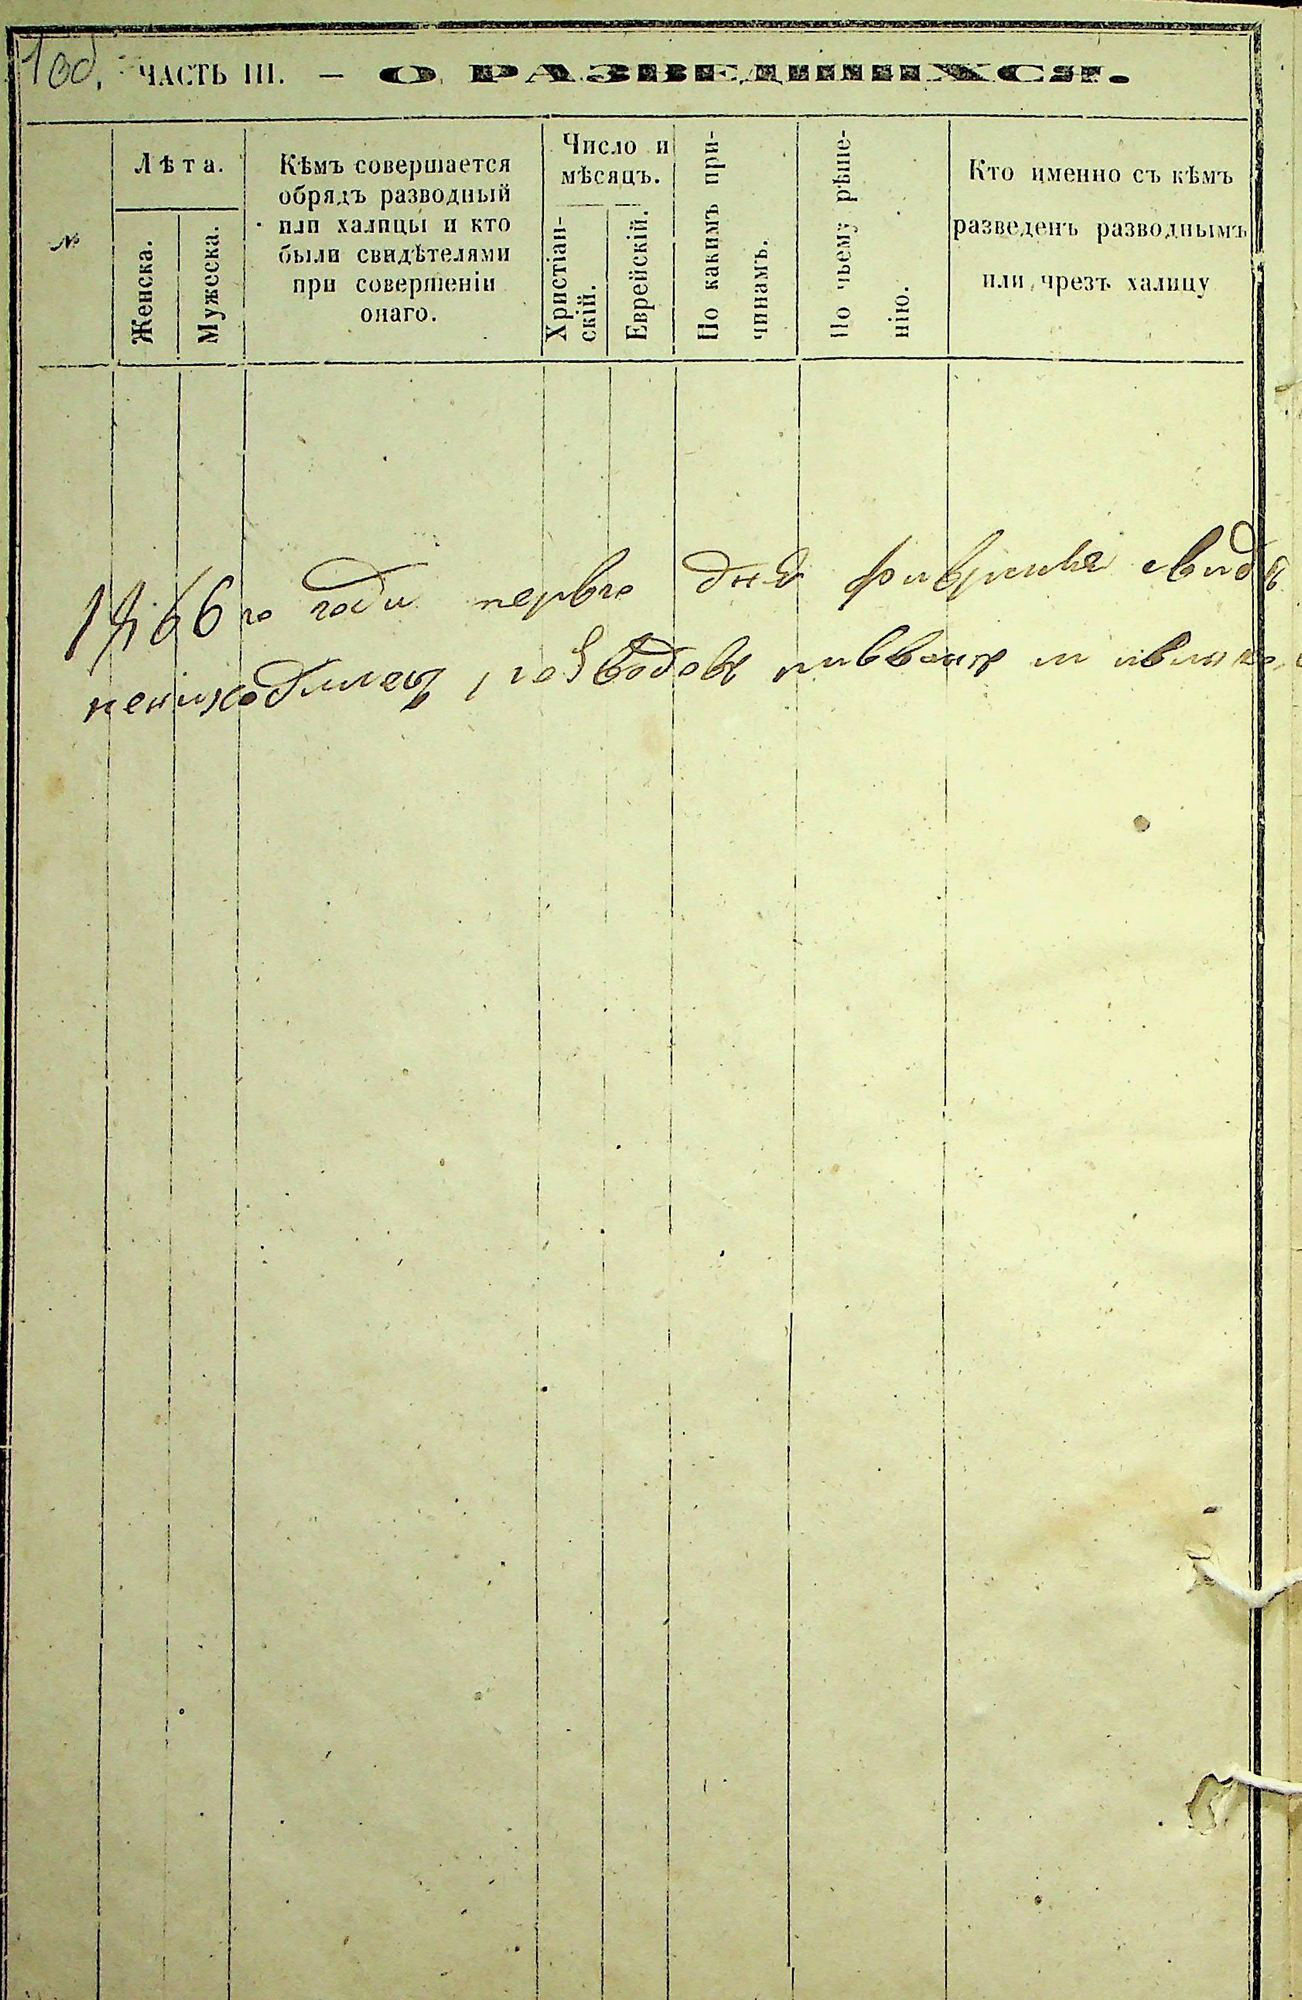 1об.
ЧАСТЬ III. — О РАЗВЕДШИХСЯ.
№
Лѣта.
Женска.
Мужеска.
Кѣмъ совершается
обрядъ разводный
или халицы и кто
были свидѣтелями
при совершеніи
онаго.
Число и
мѣсяцъ.
Христіан-
скій.
Еврейскій.
По какимъ при-
чинамъ.
По чьему рѣше-
нію.
Кто именно съ кѣмъ
разведенъ разводнымъ
или чрезъ халицу
1866 го года перваго дня